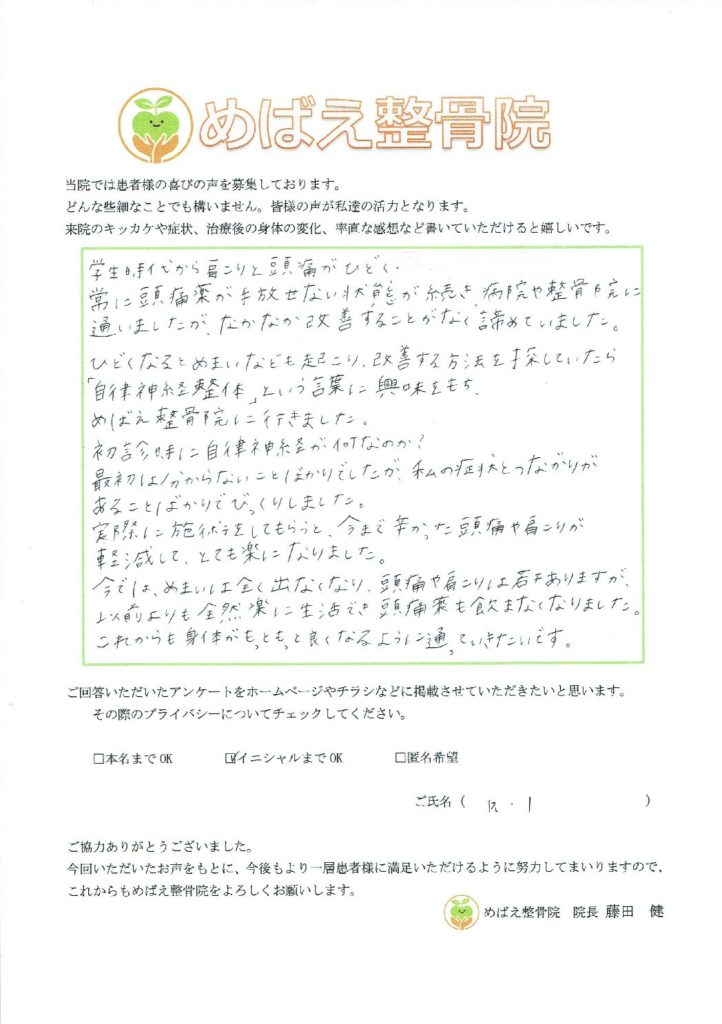 めばえ整骨院
当院では患者様の喜びの声を募集しております。
どんな些細なことでも構いません。皆様の声が私達の活力となります。
来院のキッカケや症状、治療後の身体の変化、率直な感想など書いていただけると嬉しいです。
学生時代から肩こりと頭痛がひどく、
常に頭痛薬が手放せない状態が続き病院や整骨院に
通いましたが、なかなか改善することがなく諦めていました。
ひどくなるとめまいなども起こり、改善する方法を探していたら
「自律神経整体」という言葉に興味をもち、
めばえ整骨院に行きました。
初診時に自律神経が何なのか?
最初は分からないことばかりでしたが、私の症状とつながりが
あることばかりでびっくりしました。
実際に施術をしてもらうと、今まで辛かった頭痛や肩こりが
軽減して、とても楽になりました。
今では、めまいは全く出なくなり、頭痛や肩こりは若干ありますが、
以前よりも全然楽に生活でき頭痛薬も飲まなくなりました。
これからも身体がもっともっと良くなるように通っていきたいです。
ご回答いただいたアンケートをホームページやチラシなどに掲載させていただきたいと思います。
その際のプライバシーについてチェックしてください。
□本名までOK ☑イニシャルまでOK □匿名希望
ご氏名( )
ご協力ありがとうございました。
今回いただいたお声をもとに、今後もより一層患者様に満足いただけるように努力してまいりますので、
これからもめばえ整骨院をよろしくお願いします。
めばえ整骨院 院長 藤田 健